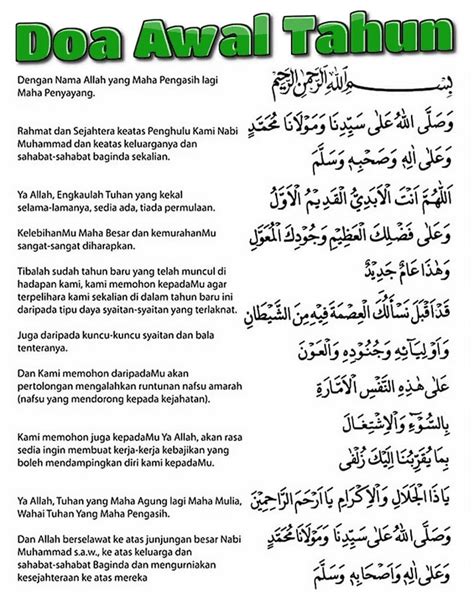 Doa Awal Tahun
Dengan Nama Allah yang Maha Pengasih lagi
Maha Penyayang.
Rahmat dan Sejahtera keatas Penghulu Kami Nabi
Muhammad dan keatas keluarganya dan
sahabat-sahabat baginda sekalian.
Ya Allah, Engkaulah Tuhan yang kekal
selama-lamanya, sedia ada, tiada permulaan.
KelebihanMu Maha Besar dan kemurahanMu
sangat-sangat diharapkan.
Tibalah sudah tahun baru yang telah muncul di
hadapan kami, kami memohon kepadaMu agar
terpelihara kami sekalian di dalam tahun baru ini
daripada tipu daya syaitan-syaitan yang terlaknat.
Juga daripada kuncu-kuncu syaitan dan bala
tenteranya.
Dan Kami memohon daripadaMu akan
pertolongan mengalahkan runtunan nafsu amarah
(nafsu yang mendorong kepada kejahatan).
Kami memohon juga kepadaMu Ya Allah, akan rasa
sedia ingin membuat kerja-kerja kebajikan yang
boleh mendampingkan diri kami kepadaMu.
Ya Allah, Tuhan yang Maha Agung lagi Maha Mulia,
Wahai Tuhan Yang Maha Pengasih.
Dan Allah berselawat ke atas junjungan besar Nabi
Muhammad s.a.w., ke atas keluarga dan
sahabat-sahabat Baginda dan mengurniakan
kesejahteraan ke atas mereka
بِسْمِ اللهِ الرَّحْمٰنِ الرَّحِيْمِ
وَصَلَّى اللهُ عَلٰى سَيِّدِنَا وَمَوْلَانَا مُحَمَّدٍ
وَعَلٰى اٰلِهٖ وَصَحْبِهٖ وَسَلَّمَ
اَللّٰهُمَّ اَنْتَ الْاَبَدِيُّ الْقَدِيْمُ الْاَوَّلُ
وَعَلٰى فَضْلِكَ الْعَظِيْمِ وَجُوْدِكَ الْمُعَوَّلِ
وَهٰذَا عَامٌ جَدِيْدٌ
قَدْ اَقْبَلَ نَسْأَلُكَ الْعِصْمَةَ فِيْهِ مِنَ الشَّيْطَانِ
وَاَوْلِيَآئِهٖ وَجُنُوْدِهٖ وَالْعَوْنَ
عَلٰى هٰذِهِ النَّفْسِ الْاَمَّارَةِ
بِالسُّوْءِ وَالْاِشْتِغَالَ
بِمَا يُقَرِّبُنَا اِلَيْكَ زُلْفٰى
يَاذَا الْجَلَالِ وَالْاِكْرَامِ يَا اَرْحَمَ الرَّاحِمِيْنَ
وَصَلَّى اللهُ عَلٰى سَيِّدِنَا وَمَوْلَانَا مُحَمَّدٍ
وَعَلٰى اٰلِهٖ وَاَصْحَابِهٖ وَسَلَّمَ